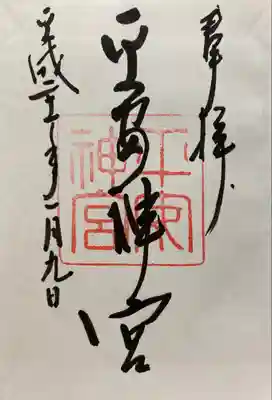 奉拝
平安神宮
平安
神宮
平成二十一年一月九日